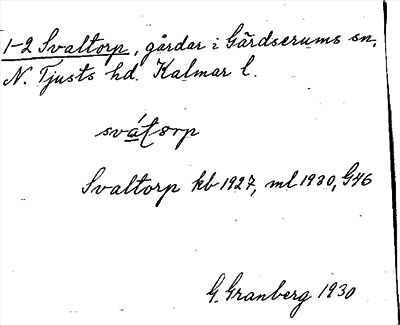 1-2 Svaltorp, gårdar i Gärdserums sn,
N. Tjusts hd. Kalmar l.
Svaltorp kb 1927, ml 1930, G46
G. Granberg 1930